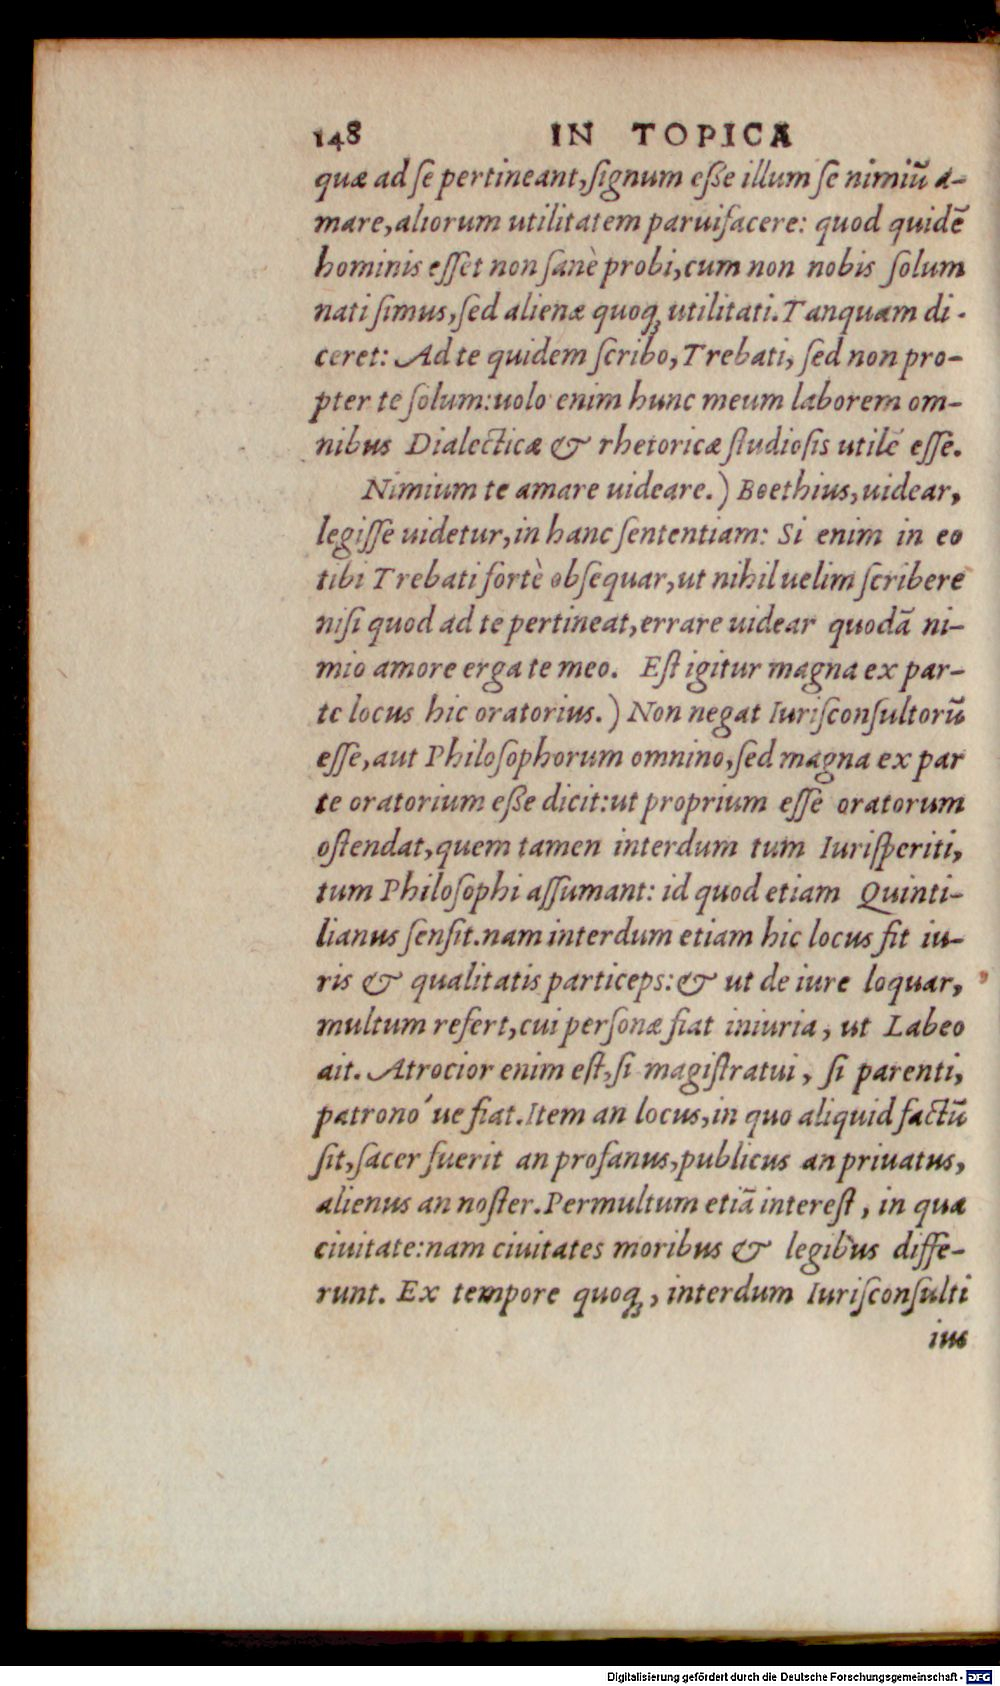 148 IN TOPICA
quæ ad ſe pertineant, ſignum eſße illum ſe nimiū a-
mare, aliorum utilitatem paruifacere: quod quidē
hominis eſſet non ſanè probi, cum non nobis ſolum
nati ſimus, ſed alienæ quoqꝫ utilitati. Tanquam di-
ceret: Ad te quidem ſcribo, Trebati, ſed non pro-
pter te ſolum: uolo enim hunc meum laborem om-
nibus Dialecticæ & rhetoricæ ſtudioſis utilē eſſe.
Nimium te amare uideare.) Boethius, uidear,
legiſſe uidetur, in hanc ſententiam: Si enim in eo
tibi Trebati fortè obſequar, ut nihil uelim ſcribere
niſi quod ad te pertineat, errare uidear quodā ni-
mio amore erga te meo. Eſt igitur magna ex par-
te locus hic oratorius.) Non negat Iuriſconſultorū
eſſe, aut Philoſophorum omnino, ſed magna ex par
te oratorium eſße dicit: ut proprium eſſe oratorum
oſtendat, quem tamen interdum tum Iuriſperiti,
tum Philoſophi aſſumant: id quod etiam Quinti-
lianus ſenſit. nam interdum etiam hic locus fit iu-
ris & qualitatis particeps: & ut de iure loquar,
multum refert, cui perſonæ fiat iniuria, ut Labeo
ait. Atrocior enim eſt, ſi magiſtratui, ſi parenti,
patrono´ue fiat. Item an locus, in quo aliquid factū
ſit, ſacer fuerit an profanus, publicus an priuatus,
alienus an noſter. Permultum etiā intereſt, in qua
ciuitate: nam ciuitates moribus & legibus diffe-
runt. Ex tempore quoqꝫ, interdum Iuriſconſulti
ius
Digitalisierung gefördert durch die Deutsche Forschungsgemeinschaft - DFG